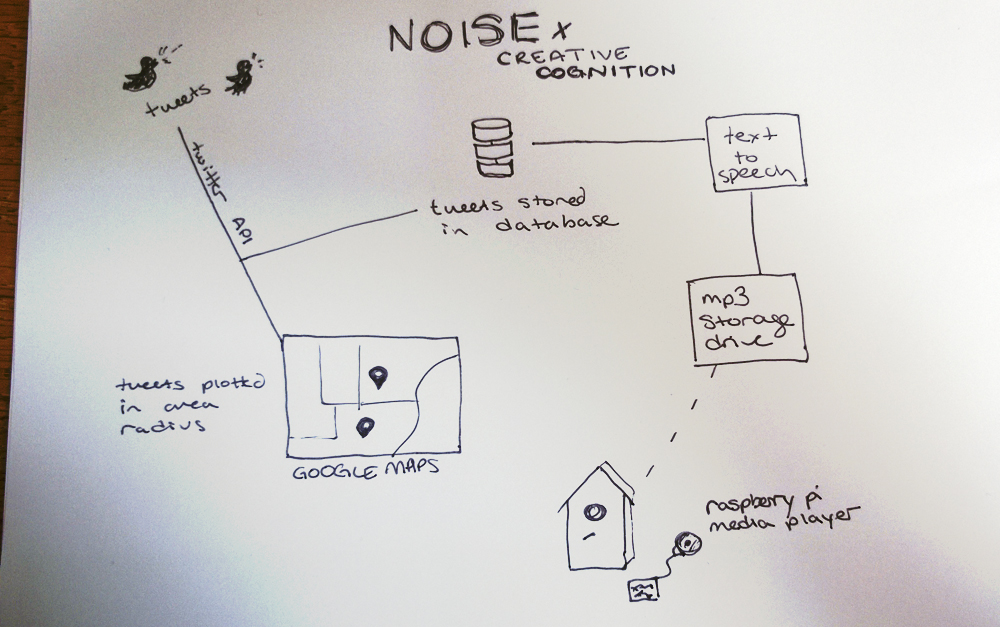 NOISE x
CREATIVE
COGNITION
tweets
twitter API
text
to
speech
tweets stored
in database
mp3
storage
drive
tweets plotted
in area
radius
GOOGLE MAPS
raspberry pi
media player